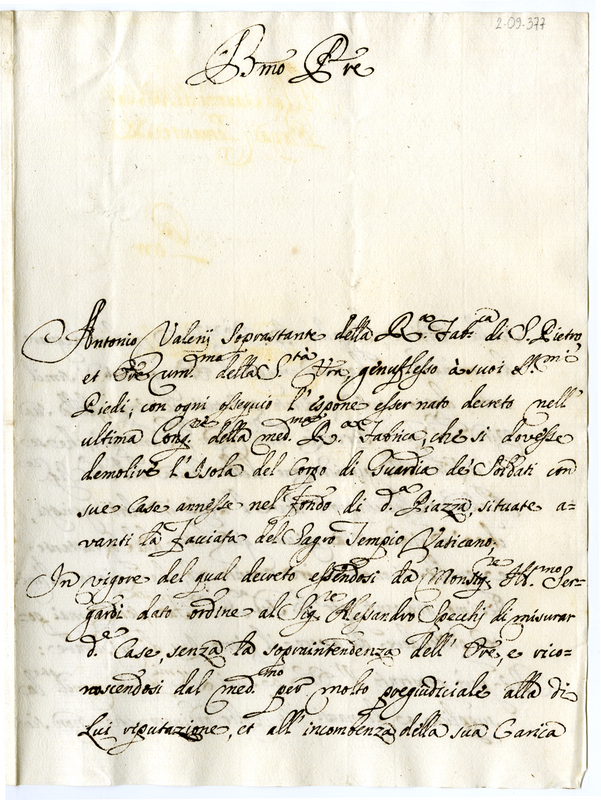 2-09-377
Bmo Pre
Antonio Valerij Soprastante della Ra. Fabca di S. Pietro
et Ore ummo della Stà Vra, genuflesso à suoi SSmi
Piedi, con ogni ossequio l'espone esser nato decreto nell'
ultima Congne della medma Ra Fabrica, che si dovesse
demolire l'Isola del Corpo di Guardia de Soldati con
sue Case annesse nel fondo di da Piazza, situate a=
vanti la Facciata del Sagro Tempio Vaticano.
In vigore del qual decreto essendosi da Monsigre Illmo Ser=
gardi dato ordine al Sigre Alessandro Specchi di misurar
de Case, senza la sopraintendenza dell' Ore, e rico=
noscendosi dal medmo per molto pregiudiciale alla di
Lui riputazione, et all' incombenza della sua Carica